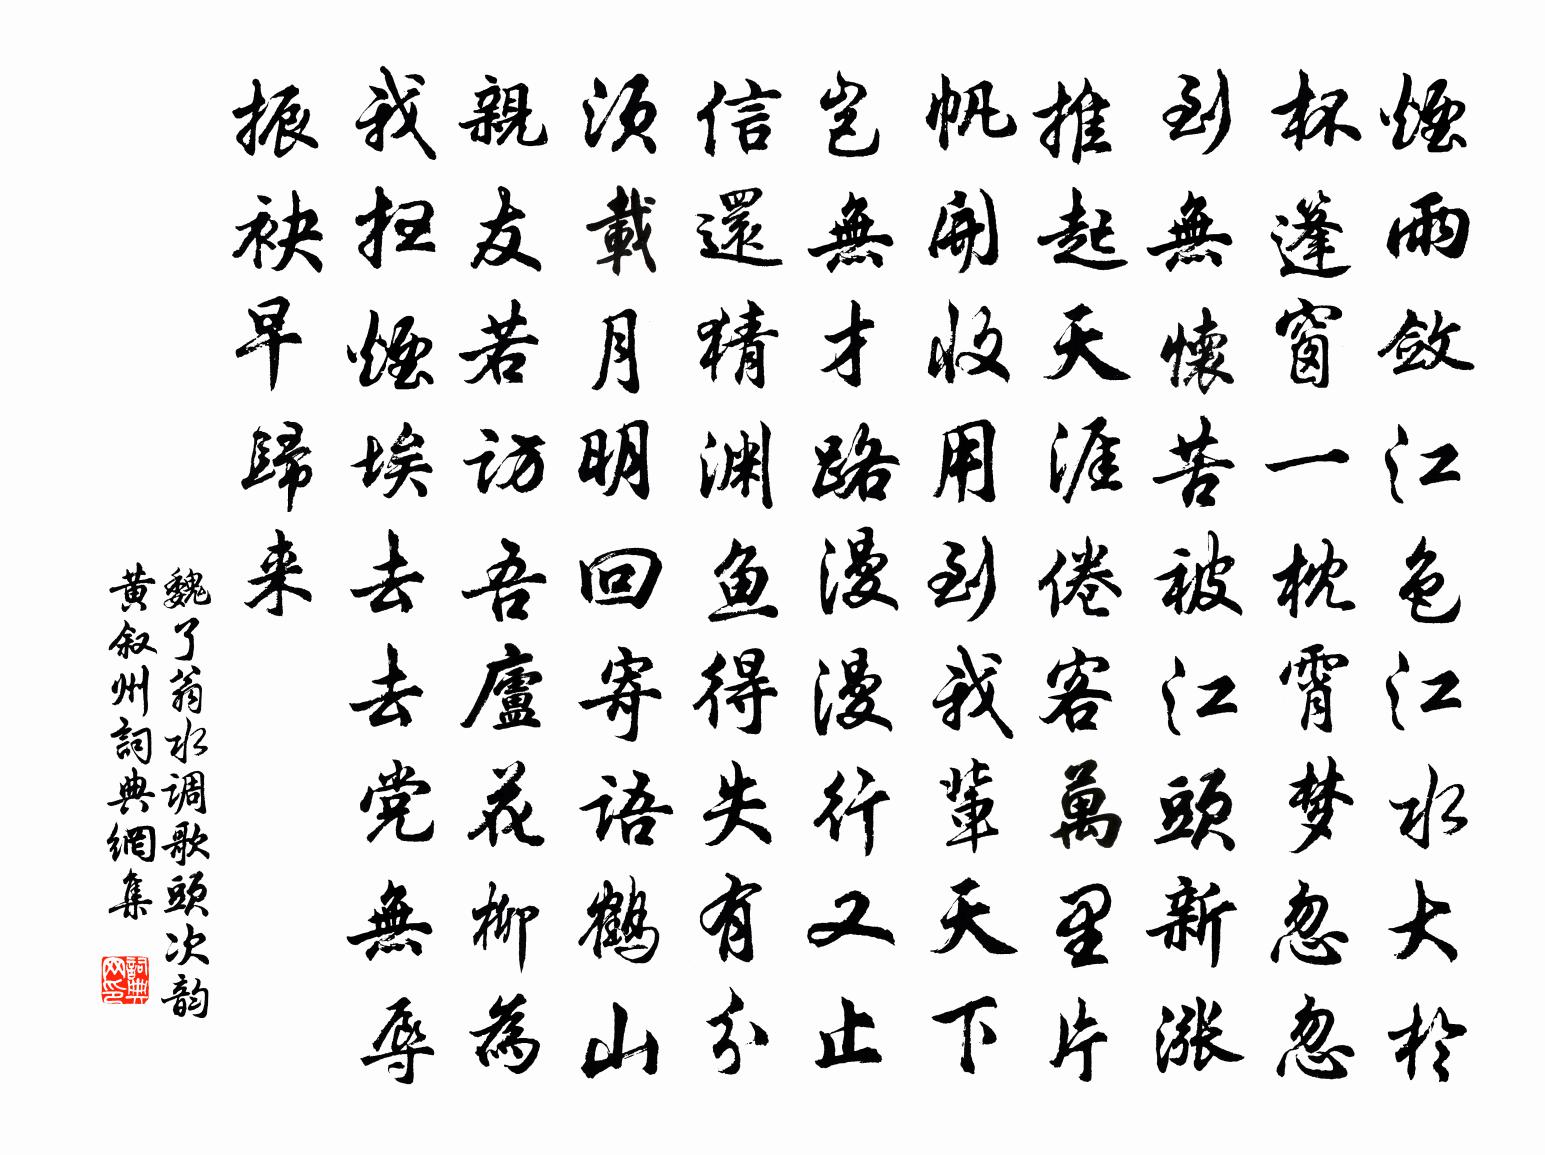 煙雨斂江色江水大於
杯蓬窗一枕霄梦忽忽
到無懷苦被江頭新漲
推起天涯倦客萬里片
帆開收用到我輩天下
岂無才路漫漫行又止
信還猜渊鱼得失有分
須載月明回寄語鶴山
親友若訪吾廬花柳為
我扫煙埃去去党無辱
振袂早歸来
魏了翁水调歌頭次韵
黄叙州詞典網集
詞典网印